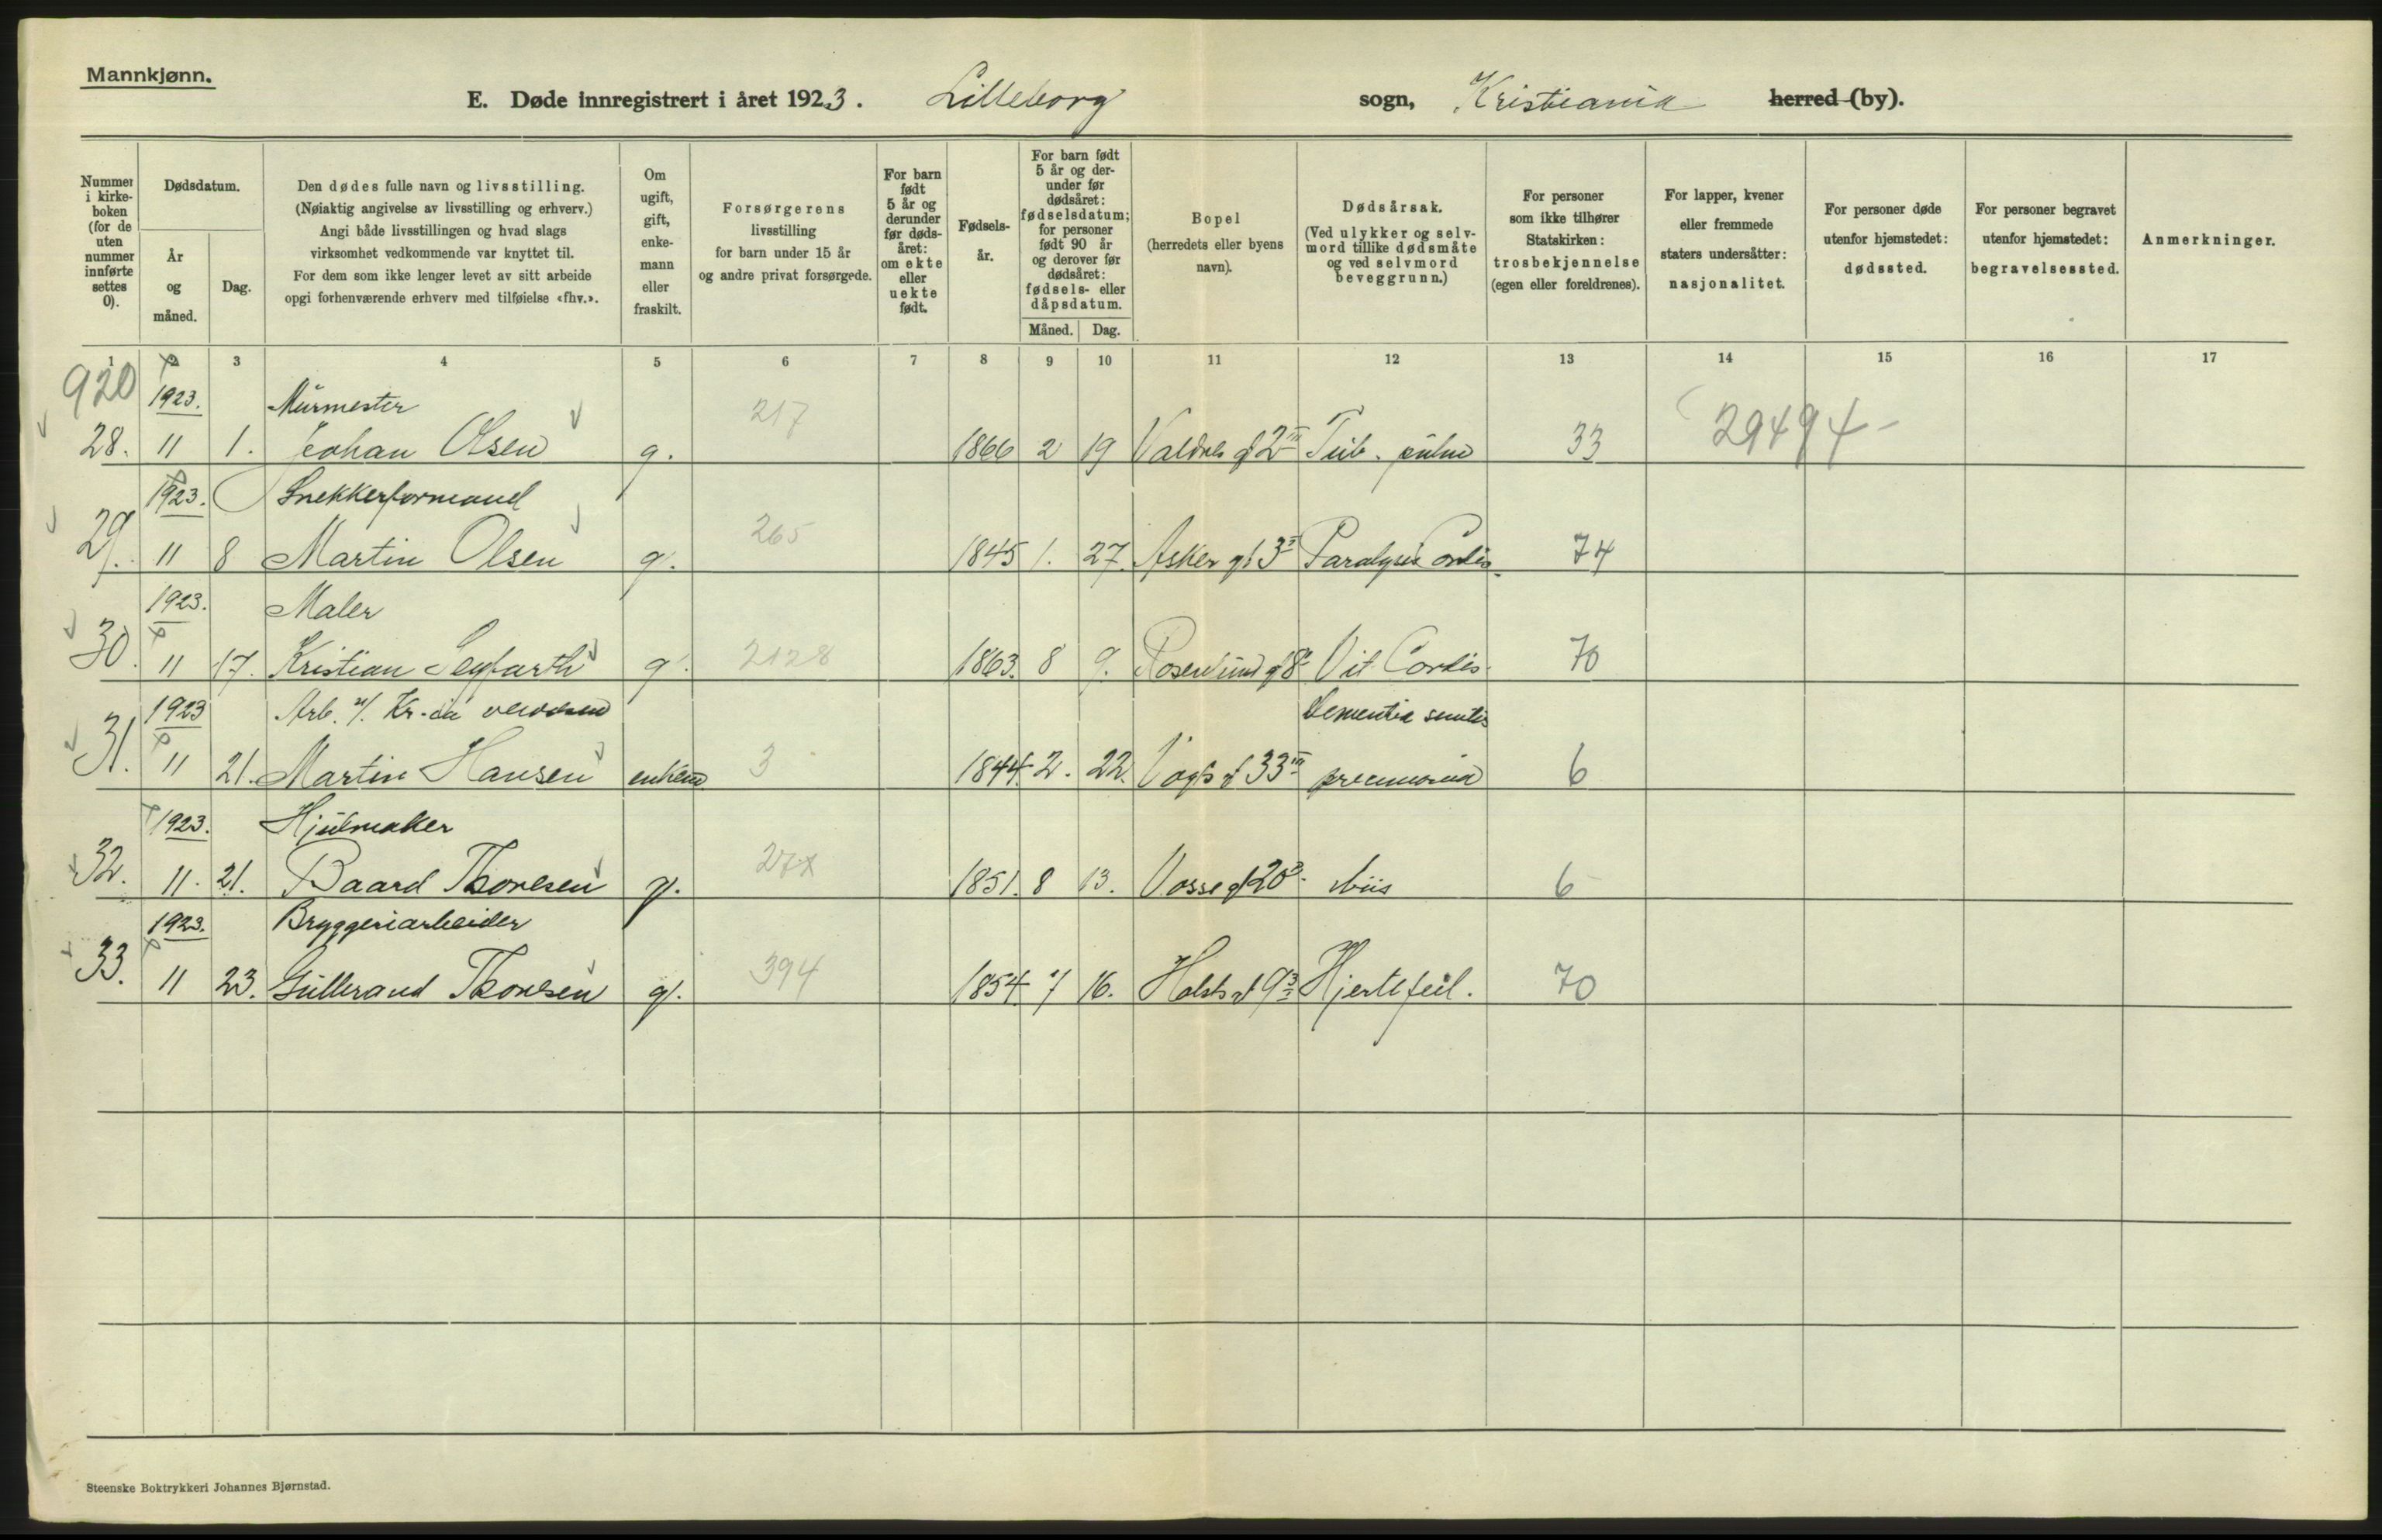 Mannkjønn.
E. Døde innregistrert i året 1923. Lilleborg sogn, Kristiania herred (by).
Nummer i kirkeboken (for de uten nummer innførte settes 0).
Dødsdatum.
År og måned.
Dag.
Den dødes fulle navn og livsstilling.
(Nøiaktig angivelse av livsstilling og erhverv.)
Angi både livsstillingen og hvad slags
virksomhet vedkommende var knyttet til.
For dem som ikke lenger levet av sitt arbeide
opgi forhenværende erhverv med tilføielse «fhv.».
Om ugift, gift, enkemann eller fraskilt.
Forsørgerens
livsstilling
for barn under 15 år
og andre privat forsørgede.
For barn født 5 år og derunder før dødsåret: om ekte eller uekte født.
Fødselsår.
For barn født 5 år og derunder før dødsåret: fødselsdatum; for personer født 90 år og derover før dødsåret: fødsels- eller dåpsdatum.
Måned. Dag.
Bopel
(herredets eller byens navn).
Dødsårsak.
(Ved ulykker og selvmord tillike dødsmåte og ved selvmord beveggrunn.)
For personer som ikke tilhører Statskirken: trosbekjennelse (egen eller foreldrenes).
For lapper, kvener eller fremmede staters undersåtter: nasjonalitet.
For personer døde utenfor hjemstedet: dødssted.
For personer begravet utenfor hjemstedet: begravelsessted.
Anmerkninger.
1 2 3 4 5 6 7 8 9 10 11 12 13 14 15 16 17
920 1923. Murmester 217 29494
28. 11 1. Johan Olsen g. 1866 2 19 Valdres g 2 III Tub. pulm 33
1923. Snekkerformand
29. 11 8 Martin Olsen g. 265 1845 1. 27. Asker gt 3 I Paralysis Cordis 74
1923. Maler
30. 11 17. Kristian Seyfarth g. 2128 1863. 8 9. Rosenlund g 8 Vit. Cordis. 70
1923 Arb. v/. Kr.-ia Dementia senilis
31. 11 21. Martin Hansen enkem 3 1844. 2. 22. Vogts gt 33 III pneumonia 6
1923. Hjulmaker
32. 11. 21. Baard Thoresen g. 1851. 8 13. Vosse gt 20 6
1923. Bryggeriarbeider
33. 11 23. Gullerand Thoresen g. 394 1854 7 16. Holsts gt 9 Hjertefeil. 70
Steenske Boktrykkeri Johannes Bjørnstad.